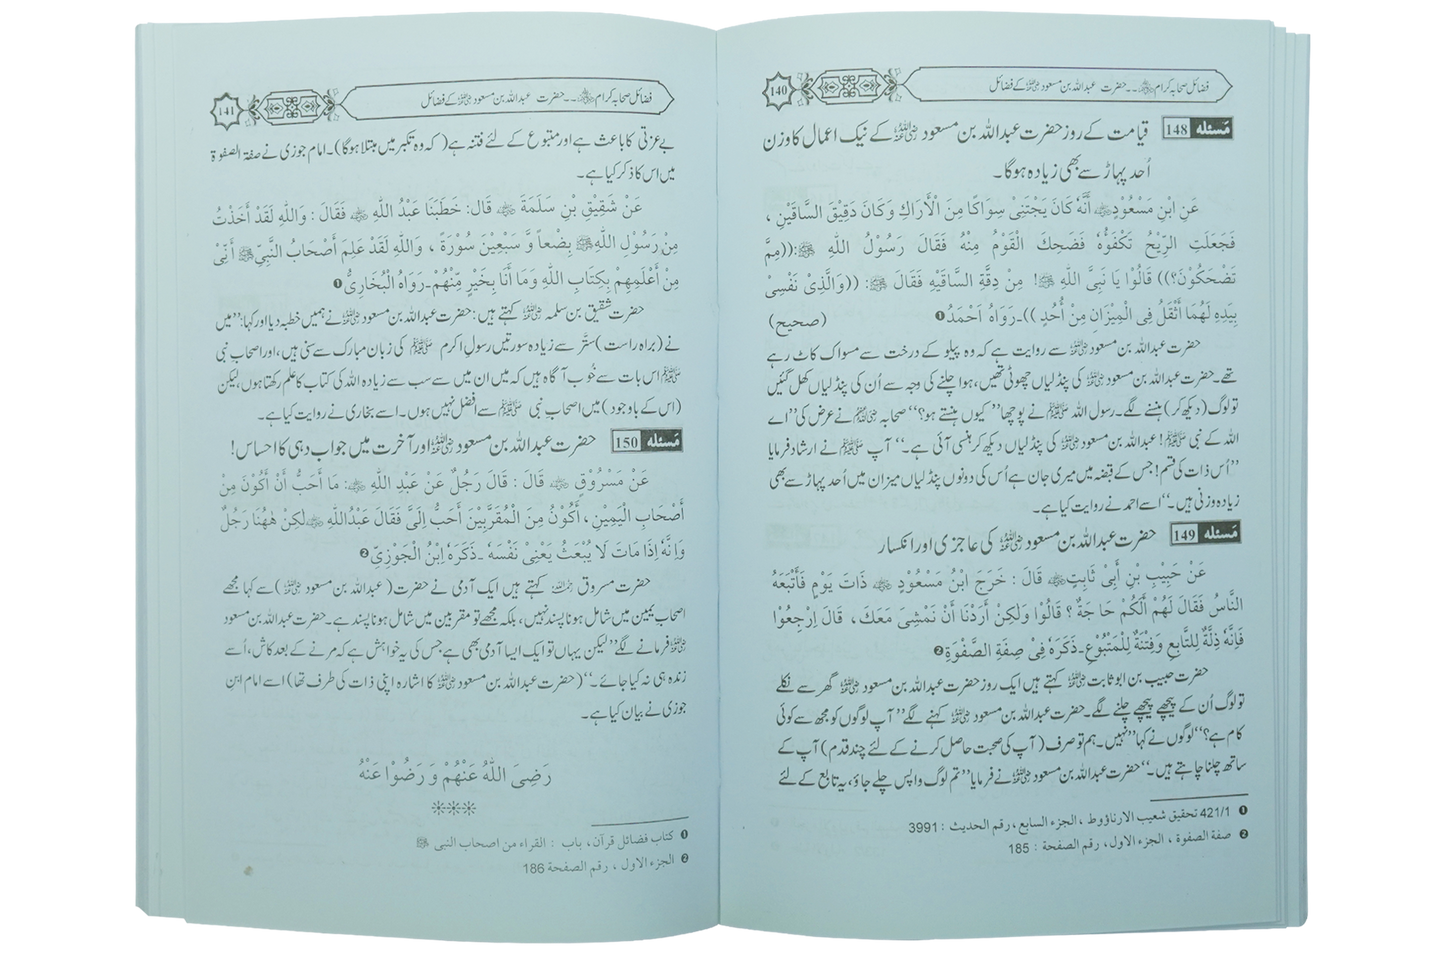 فضائل صحابہ کرام ﷢۔۔حضرت عبداللہ بن مسعود ﷜ کے فضائل
140
مَسئلہ 148 قیامت کے روز حضرت عبداللہ بن مسعود ﷜ کے نیک اعمال کا وزن
اُحد پہاڑ سے بھی زیادہ ہوگا۔
عَنِ ابْنِ مَسْعُوْدٍ ﷜ أَنَّهٗ كَانَ يَجْتَنِیْ سِوَاكًا مِنَ الْأَرَاكِ وَكَانَ دَقِيْقَ السَّاقَيْنِ ،
فَجَعَلَتِ الرِّيْحُ تَكْفَؤُهٗ فَضَحِكَ الْقَوْمُ مِنْهُ فَقَالَ رَسُوْلُ اللهِ ﷺ:((مِمَّ
تَضْحَكُوْنَ؟)) قَالُوْا يَا نَبِیَّ اللهِ ﷺ! مِنْ دِقَّةِ السَّاقَيْهِ فَقَالَ ﷺ: ((وَالَّذِیْ نَفْسِیْ
بِيَدِهٖ لَهُمَا أَثْقَلُ فِی الْمِيْزَانِ مِنْ أُحُدٍ ))۔رَوَاهُ أَحْمَدُ❶ (صحیح)
حضرت عبداللہ بن مسعود ﷜ سے روایت ہے کہ وہ پیلو کے درخت سے مسواک کاٹ رہے
تھے۔حضرت عبداللہ بن مسعود ﷜ کی پنڈلیاں چھوٹی تھیں،ہوا چلنے کی وجہ سے اُن کی پنڈلیاں کھل گئیں
تو لوگ (دیکھ کر) ہنسنے لگے۔رسول اللہ ﷺ نے پوچھا”کیوں ہنستے ہو؟“صحابہ ﷢ نے عرض کی”اے
اللہ کے نبی ﷺ! عبداللہ بن مسعود ﷜ کی پنڈلیاں دیکھ کر ہنسی آئی ہے۔“ آپ ﷺ نے ارشاد فرمایا
”اُس ذات کی قسم! جس کے قبضہ میں میری جان ہے اُس کی دونوں پنڈلیاں میزان میں اُحد پہاڑ سے بھی
زیادہ وزنی ہیں۔“اسے احمد نے روایت کیا ہے۔
مَسئلہ 149 حضرت عبداللہ بن مسعود ﷜ کی عاجزی اور انکسار
عَنْ حَبِيْبِ بْنِ أَبِیْ ثَابِتٍ ﷜ قَالَ : خَرَجَ ابْنُ مَسْعُوْدٍ ﷜ ذَاتَ يَوْمٍ فَأَتْبَعَهُ
النَّاسُ فَقَالَ لَهُمْ أَلَكُمْ حَا جَةٌ ؟ قَالُوْا وَلٰكِنْ أَرَدْنَا أَنْ نَمْشِیَ مَعَكَ ، قَالَ اِرْجِعُوْا
فَإِنَّهٗ ذِلَّةٌ لِلتَّابِعِ وَفِتْنَةٌ لِلْمَتْبُوْعِ۔ذَكَرَهٗ فِیْ صِفَةِ الصَّفْوَةِ❷
حضرت حبیب بن ابو ثابت ﷜ کہتے ہیں ایک روز حضرت عبداللہ بن مسعود ﷜ گھر سے نکلے
تو لوگ اُن کے پیچھے پیچھے چلنے لگے۔حضرت عبداللہ بن مسعود ﷜ کہنے لگے”آپ لوگوں کو مجھ سے کوئی
کام ہے؟“لوگوں نے کہا”نہیں۔ہم تو صرف (آپ کی صحبت حاصل کرنے کے لئے چند قدم) آپ کے
ساتھ چلنا چاہتے ہیں۔“حضرت عبداللہ بن مسعود ﷜ نے فرمایا”تم لوگ واپس چلے جاؤ،یہ تابع کے لئے
❶ 421/1 تحقیق شعیب الارناؤوط ، الجزء السابع ، رقم الحدیث : 3991
❷ صفۃ الصفوۃ ، الجزء الاول، رقم الصفحۃ : 185
فضائل صحابہ کرام ﷢۔۔حضرت عبداللہ بن مسعود ﷜ کے فضائل
141
بے عزتی کا باعث ہے اور متبوع کے لئے فتنہ ہے (کہ وہ تکبر میں مبتلا ہوگا)۔امام جوزی نے صفۃ الصفوۃ
میں اس کا ذکر کیا ہے۔
عَنْ شَقِيْقِ بْنِ سَلَمَةَ ﷜ قَالَ: خَطَبَنَا عَبْدُ اللهِ ﷜ فَقَالَ : وَاللهِ لَقَدْ أَخَذْتُ
مِنْ رَسُوْلِ اللهِ ﷺ بِضْعاً وَّ سَبْعِيْنَ سُوْرَةً ، وَاللهِ لَقَدْ عَلِمَ أَصْحَابُ النَّبِیِّ ﷺ أَنِّیْ
مِنْ أَعْلَمِهِمْ بِكِتَابِ اللهِ وَمَا أَنَا بِخَيْرٍ مِّنْهُمْ۔رَوَاهُ الْبُخَارِیُّ❶
حضرت شقیق بن سلمہ ﷜ کہتے ہیں:حضرت عبداللہ بن مسعود ﷜ نے ہمیں خطبہ دیا اور کہا:”میں
نے (براہ راست) ستّر سے زیادہ سورتیں رسولِ اکرم ﷺ کی زبان مبارک سے سنی ہیں،اور اصحابِ نبی
ﷺ اس بات سے خُوب آگاہ ہیں کہ میں ان میں سے سب سے زیادہ اللہ کی کتاب کا علم رکھتا ہوں،لیکن
(اس کے باوجود) میں اصحابِ نبی ﷺ سے افضل نہیں ہوں۔اسے بخاری نے روایت کیا ہے۔
مَسئلہ 150 حضرت عبداللہ بن مسعود ﷜ اور آخرت میں جواب دہی کا احساس!
عَنْ مَسْرُوْقٍ ﷫ قَالَ : قَالَ رَجُلٌ عَنْ عَبْدِ اللهِ ﷜: مَا أُحِبُّ أَنْ أَكُوْنَ مِنْ
أَصْحَابِ الْيَمِيْنِ ، أَكُوْنُ مِنَ الْمُقَرَّبِيْنَ أَحَبُّ إِلَیَّ فَقَالَ عَبْدُاللهِ ﷜ لٰكِنْ هٰهُنَا رَجُلٌ
وَاِنَّهٗ إِذَا مَاتَ لَا يُبْعَثُ يَعْنِیْ نَفْسَهٗ ۔ذَكَرَهٗ اِبْنُ الْجَوْزِیِّ❷
حضرت مسروق ﷫ کہتے ہیں ایک آدمی نے حضرت (عبداللہ بن مسعود ﷜) سے کہا مجھے
اصحابِ یمین میں شامل ہونا پسند نہیں،بلکہ مجھے تو مقربین میں شامل ہونا پسند ہے۔حضرت عبداللہ بن مسعود
﷜ فرمانے لگے”لیکن یہاں تو ایک ایسا آدمی بھی ہے جس کی یہ خواہش ہے کہ مرنے کے بعد کاش،اُسے
زندہ ہی نہ کیا جائے۔“(حضرت عبداللہ بن مسعود ﷜ کا اشارہ اپنی ذات کی طرف تھا) اسے امام ابنِ
جوزی نے بیان کیا ہے۔
رَضِیَ اللّٰهُ عَنْهُمْ وَ رَضُوْا عَنْهُ
❶ کتاب فضائل قرآن ، باب : القراء من اصحاب النبی ﷺ
❷ الجزء الاول ، رقم الصفحۃ 186